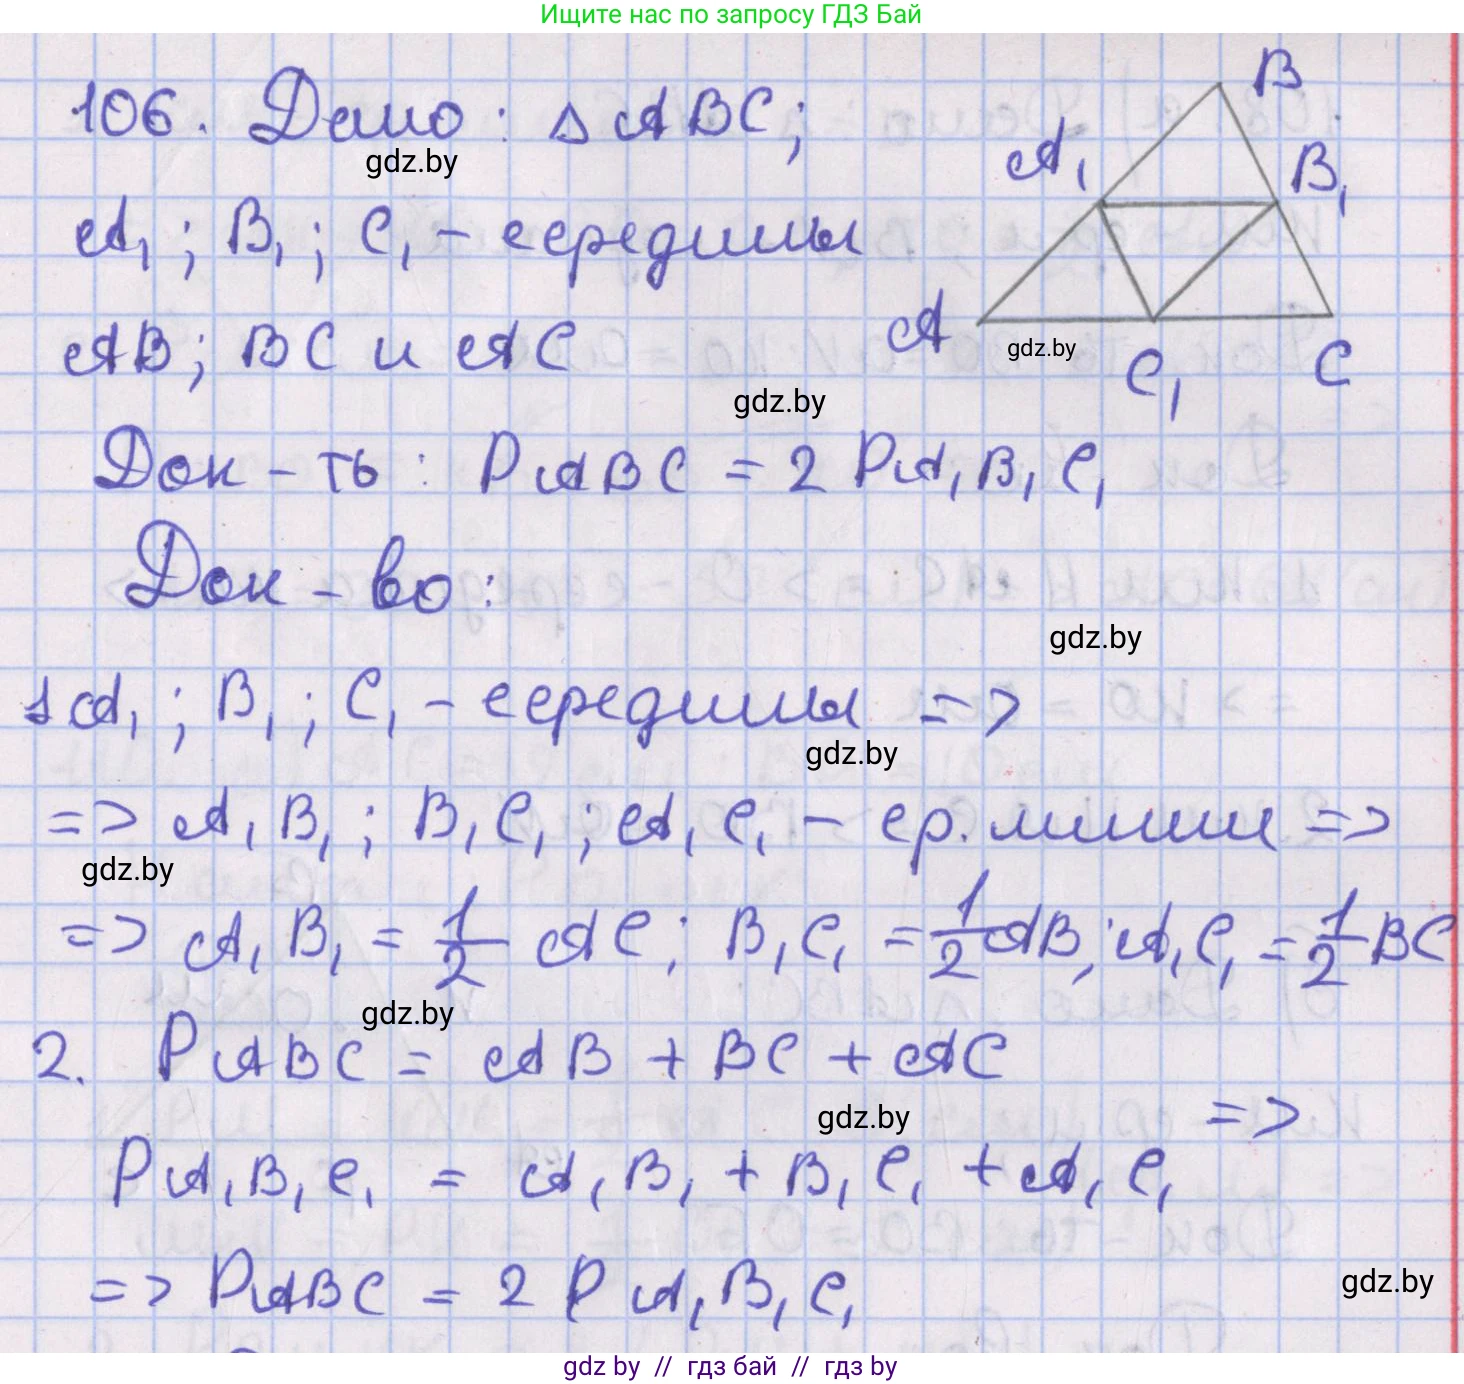 Ищите нас по запросу ГДЗ Бай
106. Дано: △ABC;
gdz.by
A₁; B₁; C₁ - середины
AB; BC и AC
B
A₁
B₁
A
C₁
C
gdz.by
gdz.by
Док-ть: PABC = 2 PA₁B₁C₁
Док-во:
gdz.by
1 A₁; B₁; C₁ - середины =>
gdz.by
=> A₁B₁; B₁C₁; A₁C₁ - ср. линии =>
gdz.by
=> A₁B₁ = 1/2 AC; B₁C₁ = 1/2 AB; A₁C₁ = 1/2 BC
gdz.by
2. PABC = AB + BC + AC
gdz.by
=>
PA₁B₁C₁ = A₁B₁ + B₁C₁ + A₁C₁
=> PABC = 2 PA₁B₁C₁
gdz.by
gdz by // гдз бай // гдз by